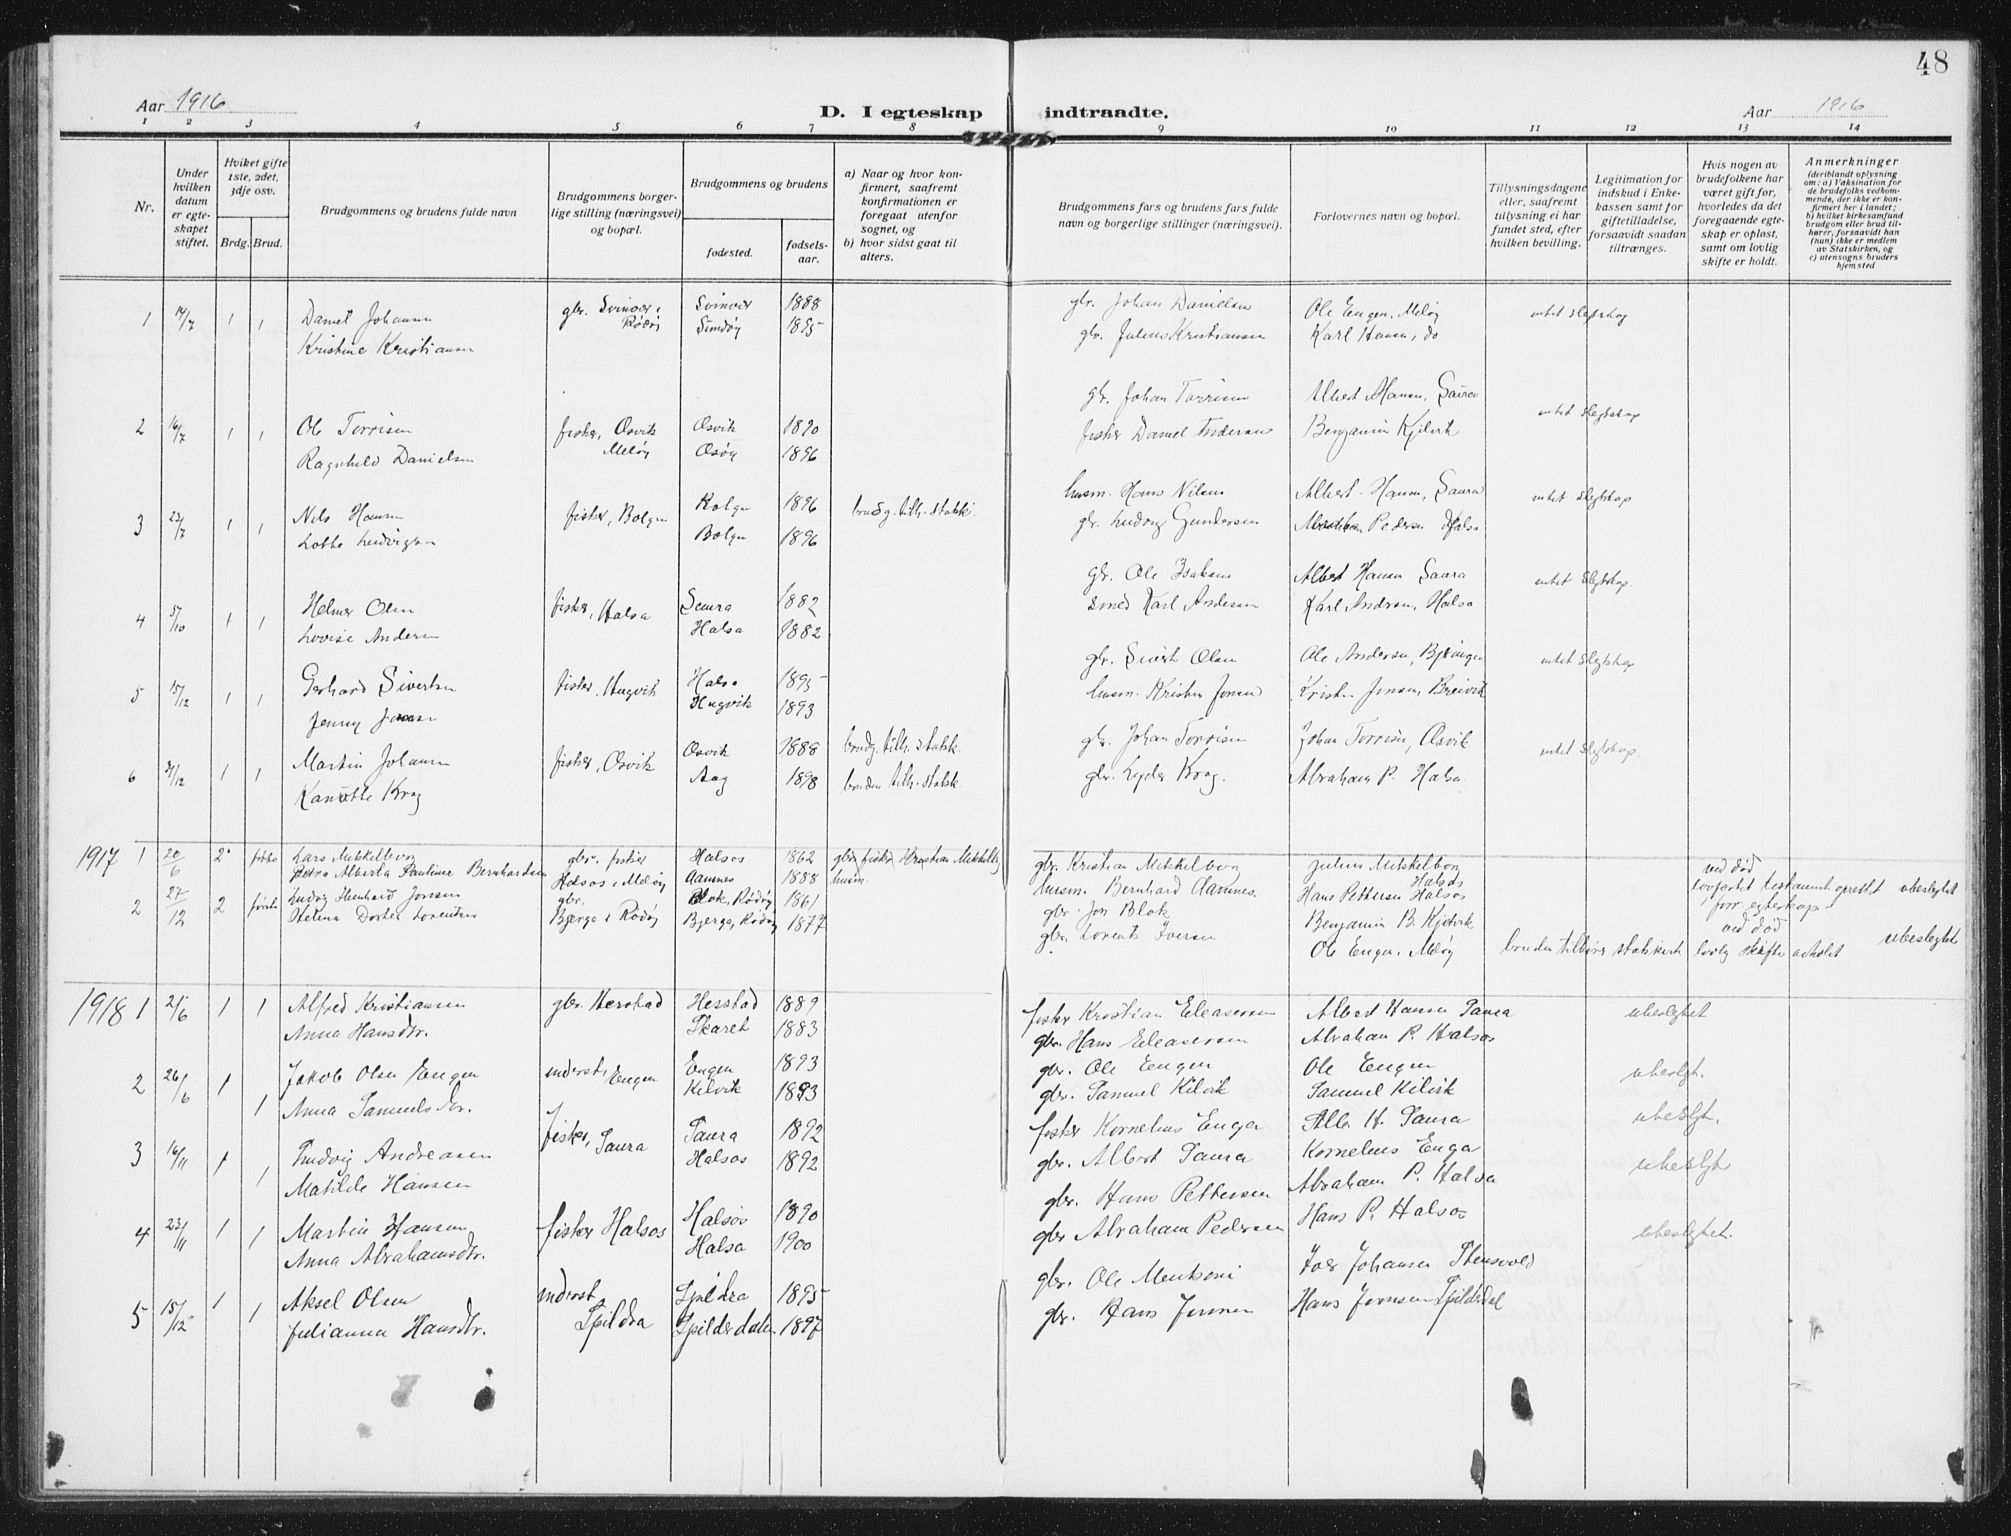 48
Aar 1916
D. I egteskap indtraadte.
Aar 1916
1 2 3 4 5 6 7 8 9 10 11 12 13 14
Nr.
Under hvilken datum er egteskapet stiftet.
Hviket gifte 1ste, 2det, 3dje osv.
Brdg. Brud.
Brudgommens og brudens fulde navn
Brudgommens borgerlige stilling (næringsvei) og bopæl.
Brudgommens og brudens
fødested.
fødselsaar.
a) Naar og hvor konfirmert, saafremt konfirmationen er foregaat utenfor sognet, og
b) hvor sidst gaat til alters.
Brudgommens fars og brudens fars fulde navn og borgerlige stillinger (næringsvei).
Forlovernes navn og bopæl.
Tillysningsdagene eller, saafremt tillysning ei har fundet sted, efter hvilken bevilling.
Legitimation for indskud i Enkekassen samt for giftetilladelse, forsaavidt saadan tiltrænges.
Hvis nogen av brudefolkene har været gift før, hvorledes da det foregaaende egteskap er opløst, samt om lovlig skifte er holdt.
Anmerkninger (deriblandt oplysning om: a) Vaksination for de brudefolks vedkommende, der ikke er konfirmert her i landet; b) hvilket kirkesamfund brudgom eller brud tilhører, forsaavidt han (hun) ikke er medlem av Statskirken, og c) utensogns bruders hjemsted
1 1 1 Daniel Johansen gbr. Svinvær i Svinvær 1888 gbr. Johan Danielsen Ole Engen, Meløy intet slegtskap
Kristine Kristiansen Rödöy 1895 gbr. Julius Kristiansen Karl Hansen, do
2 16/7 1 1 Ole Torrisen fisker, Osvik Osvik 1890 gbr. Johan Torrisen Albert Hansen, Saura intet slegtskap
Ragnhild Danielsen Meløy Osöy 1896 fisker Daniel Andersen Benjamin Kjelvik
3 23/7 1 1 Nils Hansen fisker, Bolgen Bolgen 1896 brudg. tilh. statsk. husm. Hans Nilsen Albert Hansen, Saura intet slegtskap
Lotte Ludvigsen Bolgen 1896 gbr. Ludvig Gundersen Pedersen Halsa
4 5/10 1 1 Helmer Olsen fisker, Halsa Saura 1882 gbr. Ole Isaksen Albert Hansen Saura intet slegtskap.
Lovise Andersen Halsa 1882 smed Karl Andersen Karl Andersen, Halsa
5 15/12 1 1 Gerhard Sivertsen fisker, Hugvik Halsa 1895 gbr. Sivert Olsen Ole Andersen, Bjæringen intet slegtskap
Jenny Jensen Hugvik 1893 husm. Kristen Jensen Kristen Jensen, Breivik
6 1 1 Martin Johansen fisker, Osvik Osvik 1888 brudg. tilh. statsk. gbr. Johan Torrisen Johan Torrisen, Osvik intet slegtskap.
Krog Aag 1898 bruden tilh. statsk. gbr. Lyder Krog. Abraham P. Halsa.
1917 1 20/6 2 første Lars Mikkelborg gbr. fisker Halsos 1862 gbr. fisker Kristian Mikkelb. gbr. Kristian Mikkelborg Julius Mikkelborg Halsos ved død
Petra Alberta Pauline Bernhardsen Halsos i Meløy Aamnes 1888 husm. husm. Bernhard Aamnes. Hans Pettersen Halsos lovformet testament oprettet ubeslegtet
før egteskap
2 27/12 2 første Ludvig Henhard Jonsen gbr. Blok, Rödöy 1861 gbr. Jon Blok Benjamin B. Kjelvik ved død
Helena Dortea Lorentsen Bjerga i Rödöy Bjerga, Rödöy 1877 gbr. Lorents Iversen Ole Engen, Meløy bruden tilhører statskirk lovlig skifte avholdt ubeslegtet
1918 1 2/6 1 1 Alfred Kristiansen gbr. Hesstad Hesstad 1889 fisker Kristian Eleasersen Albert Hansen Saura ubeslegtet
Anna Hansdtr. Skaret 1883 gbr. Hans Eleasersen Abraham P. Halsos
2 26/6 1 1 Jakob Olsen Engen inderst, Engen Engen 1893 gbr. Ole Engen Ole Engen ubeslgt.
Anna Samuelsdtr. Kilvik 1893 gbr. Samuel Kilvik Samuel Kilvik
3 16/11 1 1 Ludvig Andreasen fisker, Saura Saura 1892 fisker Kornelius Enga Alb. H. Saura ubeslgt.
Matilde Hansen Halsos 1892 gbr. Albert Saura Kornelius Enga ubeslgt
4 23/11 1 1 Martin Hansen fisker Halsos Halsos 1890 gbr. Hans Pettersen Abraham P. Halsa
Anna Abrahamsdtr. Halsa 1900 gbr Abraham Pedersen Hans P. Halsos ubeslegtet.
5 15/12 1 1 Aksel Olsen inderst Spildra 1895 gbr. Ole Johansen Stensvold
Julianna Hansdtr. Spildra Spilderdalen 1897 gbr. Hans Jonsen Hans Jonsen Spilderdal